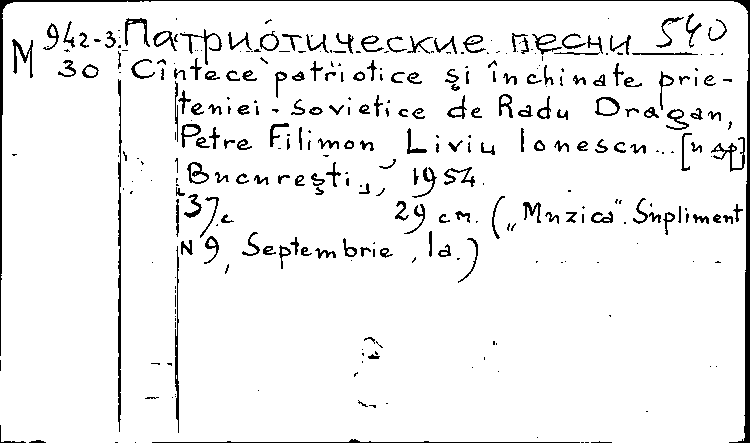 М 942-3 Патриотические песни 540
30 Cîntece patriotice şi închinate prie-
teniei - sovietice de Radu Dragan,
Petre Filimon, Liviu Ionescu... [и др]
Bucureşti, 1954.
37 с 29 см. („Muzica". Supliment
N 9, Septembrie, la.)